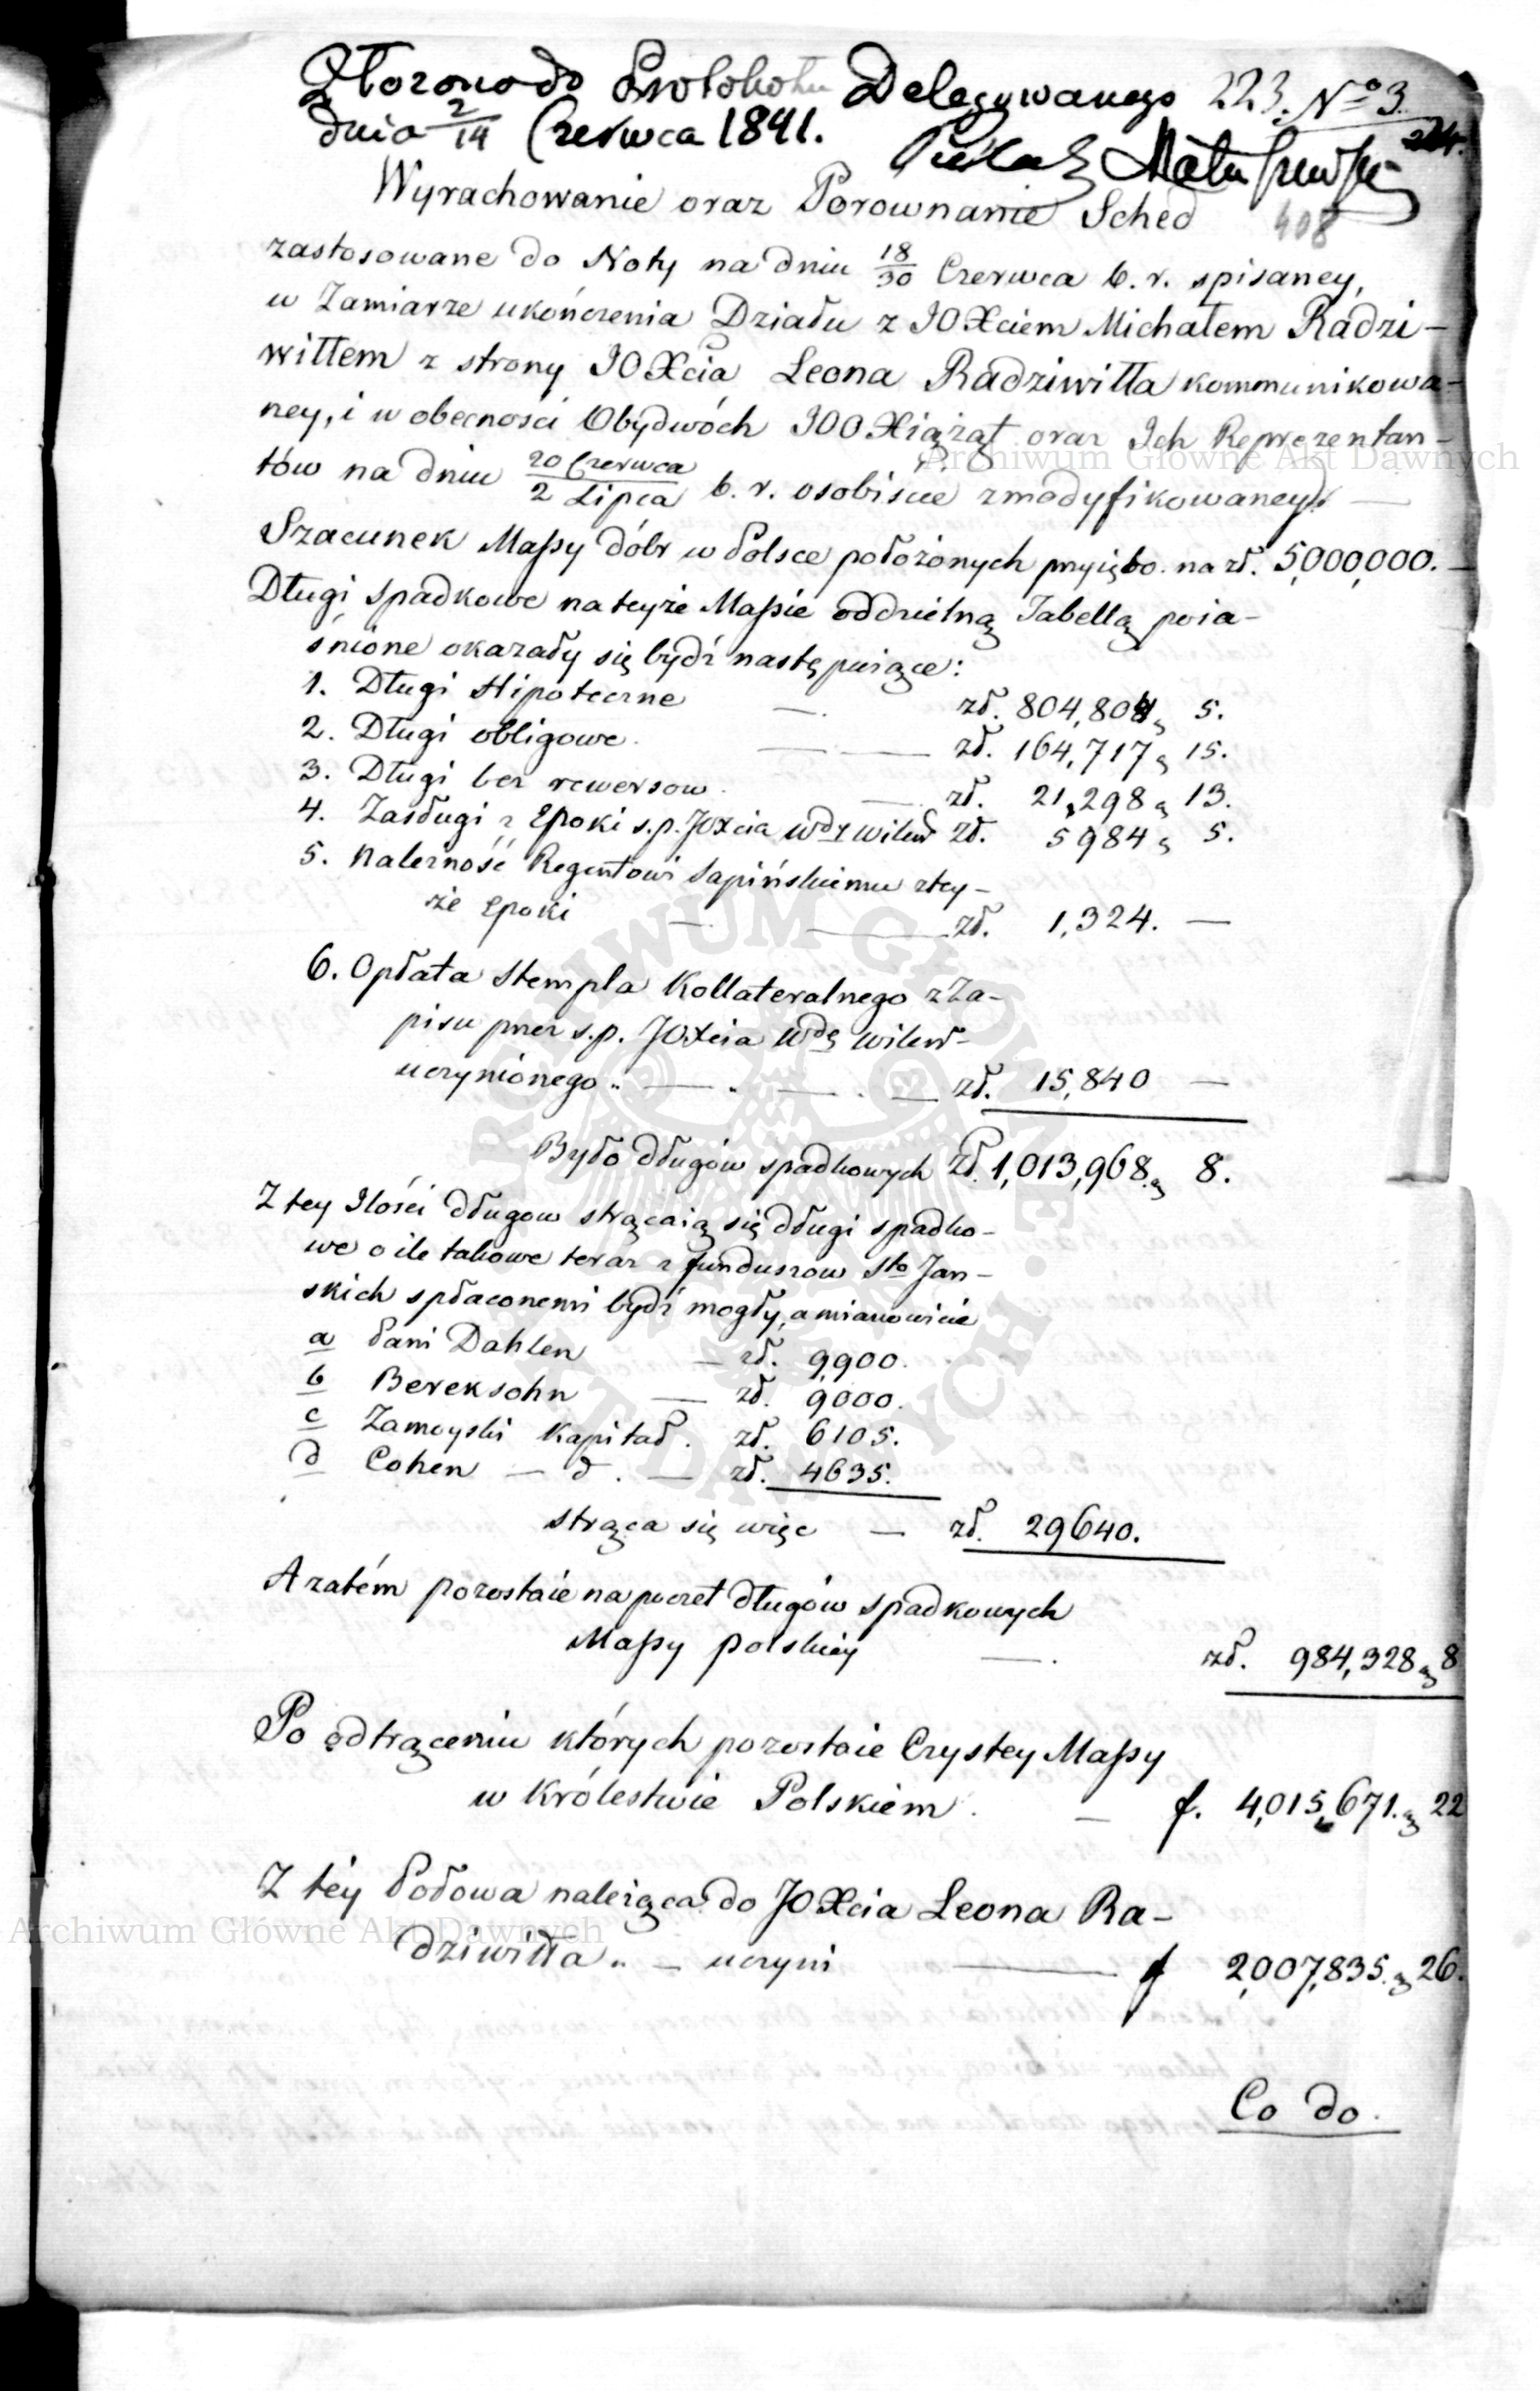 Złożono do Protokołu Delegowanego 223. No 3.
dnia 2/14 Czerwca 1841.
408
Wyrachowanie oraz Porownanie Sched
zastosowane do Noty na dniu 18/30 Czerwca b. r. spisaney,
w Zamiarze ukończenia Działu z JO Xciem Michałem Radzi-
wiłłem z strony JO Xcia Leona Radziwiłła kommunikowa-
ney, i w obecności Obydwóch JOO Xiążąt oraz Ich Reprezentan-
tów na dniu 20 Czerwca/2 Lipca b. r. osobiście zmodyfikowaney. —
Szacunek Massy dóbr w Polsce położonych przyięto na zł. 5,000,000. —
Długi spadkowe na teyże Massie oddzielną Tabellą poia-
śnione okazały się bydź następuiące:
1. Długi Hipoteczne — zł. 804,804 g 5.
2. Długi obligowe. — — zł. 164,717 g 15.
3. Długi bez rewersow. — zł. 21,298 g 13.
4. Zasługi z Epoki s.p. JOXcia Wdy Wileń zł. 5984 g 5.
5. Należność Regentowi Sapińskiemu z tey-
że Epoki — — zł. 1,324. —
6. Opłata Stempla Kollateralnego z Za-
pisu przez s.p. JOXcia Wdę Wileń-
uczynionego .. — . — . — zł. 15,840 —
Było długów spadkowych zł. 1,013,968 g 8.
Z tey Ilości długow strącaią się długi spadko-
we o ile takowe teraz z funduszow Sto Jan-
skich spłaconemi bydź mogły, a mianowicie
a Pani Dahlen — zł. 9,900.
b Bereksohn — zł. 9,000.
c Zamoyski Kapitał. zł. 6105.
d Cohen — d. — zł. 4635.
strąca się więc — zł. 29640.
A zatém pozostaie na poczet długów spadkowych
Massy polskiey — . zł. 984,328 g 8
Po odtrąceniu których pozostaie Czystey Massy
w Królestwie Polskiem. — f. 4,015,671. g 22
Z téy Połowa należąca do JO Xcia Leona Ra-
dziwiłła .. — uczyni — f 2,007,835. g 26.
Co do.
Archiwum Główne Akt Dawnych
Archiwum Główne Akt Dawnych
ARCHIWUM GŁÓWNE AKT DAWNYCH